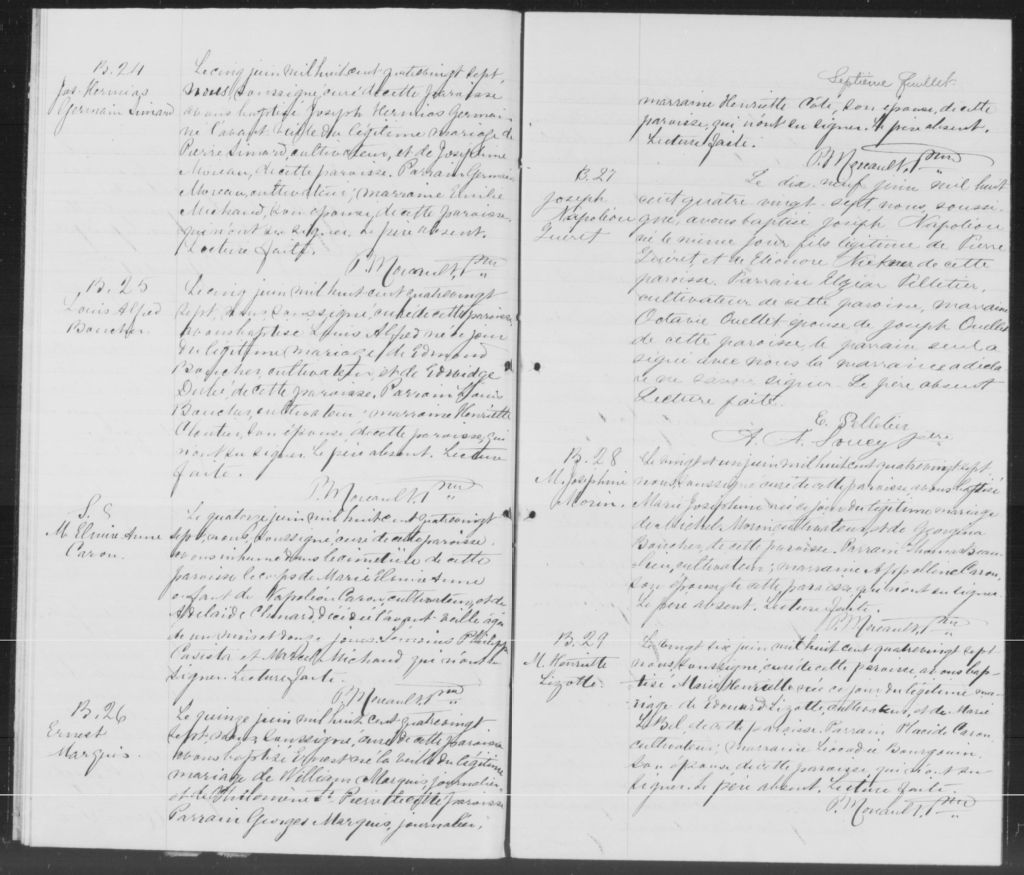 B. 24
Jos. Hermias
Germain Simard
Le cinq juin mil huit cent quatrevingt sept,
nous, soussigné, curé de cette paroisse
avons baptisé Joseph Hermias Germai-
né l'avant veille du légitime mariage de
Pierre Simard, cultivateur, et de Joséphine
Moreau, de cette paroisse. Parrain Germain
Moreau, cultivateur; marraine Emilie
Michaud, son épouse, de cette paroisse,
qui n'ont su signer. Le père absent.
Lecture faite.
Ptre
B. 25
Louis Alfred
Boucher
Le cinq juin mil huit cent quatrevingt
sept, nous soussigné, curé de cette paroisse
avons baptisé Louis Alfred né ce jour
du légitime mariage de Edmond
Boucher, cultivateur, et de Edwidge
Dubé, de cette paroisse. Parrain Louis
Boucher, cultivateur; marraine Henriette
Cloutier, son épouse, de cette paroisse, qui
n'ont su signer. Le père absent. Lecture
faite.
Ptre
M. Elmire Anne
Caron.
Le quatorze juin mil huit cent quatrevingt
sept, nous, soussigné, curé de cette paroisse
avons inhumé dans le cimetière de cette
paroisse le corps de Marie Elmire Anne
enfant de Napoléon Caron, cultivateur, et de
Adelaïde Chouard décédée l'avant-veille âgée
de un mois et douze jours. Témoins Philippe
et Michaud qui n'ont su
signer. Lecture faite.
Ptre
B. 26
Ernest
Marquis.
Le quinze juin mil huit cent quatrevingt
sept, nous, soussigné, curé de cette paroisse
avons baptisé Ernest né la veille du légitime
mariage de William Marquis, journalier
et de Philomène St Pierre de cette paroisse
Parrain Georges Marquis, journalier;
Septième feuillet
marraine Henriette Côté, son épouse, de cette
paroisse, qui n'ont su signer. Le père absent.
Lecture faite.
Ptre
B. 27
Joseph
Napoléon
Guéret
Le dix neuf juin mil huit
cent quatre vingt-sept nous, soussi-
gné, avons baptisé Joseph Napoléon
né le même jour fils légitime de Pierre
Guéret et de Eléonore de cette
paroisse. Parrain Elzéar Pelletier,
cultivateur de cette paroisse, marraine
Octavie Ouellet épouse de Joseph Ouellet
de cette paroisse le parrain seul a
signé avec nous la marraine a décla-
ré ne savoir signer. Le père absent
Lecture faite.
E. Pelletier
A. A. Soucy ptre
B. 28
M. Joséphine
Morin.
Le vingt et un juin mil huit cent quatrevingt sept
nous, soussigné curé de cette paroisse avons baptisé
Marie Joséphine née ce jour du légitime mariage
de Michel Morin, cultivateur, et de Georgina
Boucher, de cette paroisse. Parrain Thomas Beau-
lieu, cultivateur; marraine Appolline Caron,
son épouse, de cette paroisse, qui n'ont su signer.
Le père absent. Lecture faite.
Ptre
B. 29
M. Henriette
Lizotte.
Le vingt six juin mil huit cent quatrevingt sept
nous, soussigné, curé de cette paroisse avons bap-
tisé Marie Henriette née ce jour du légitime ma-
riage de Edouard Lizotte, cultivateur, et de Marie
LeBel, de cette paroisse. Parrain Placide Caron
cultivateur; marraine Léocadie Bourgouin
son épouse de cette paroisse, qui n'ont su
signer. Le père absent. Lecture faite.
Ptre